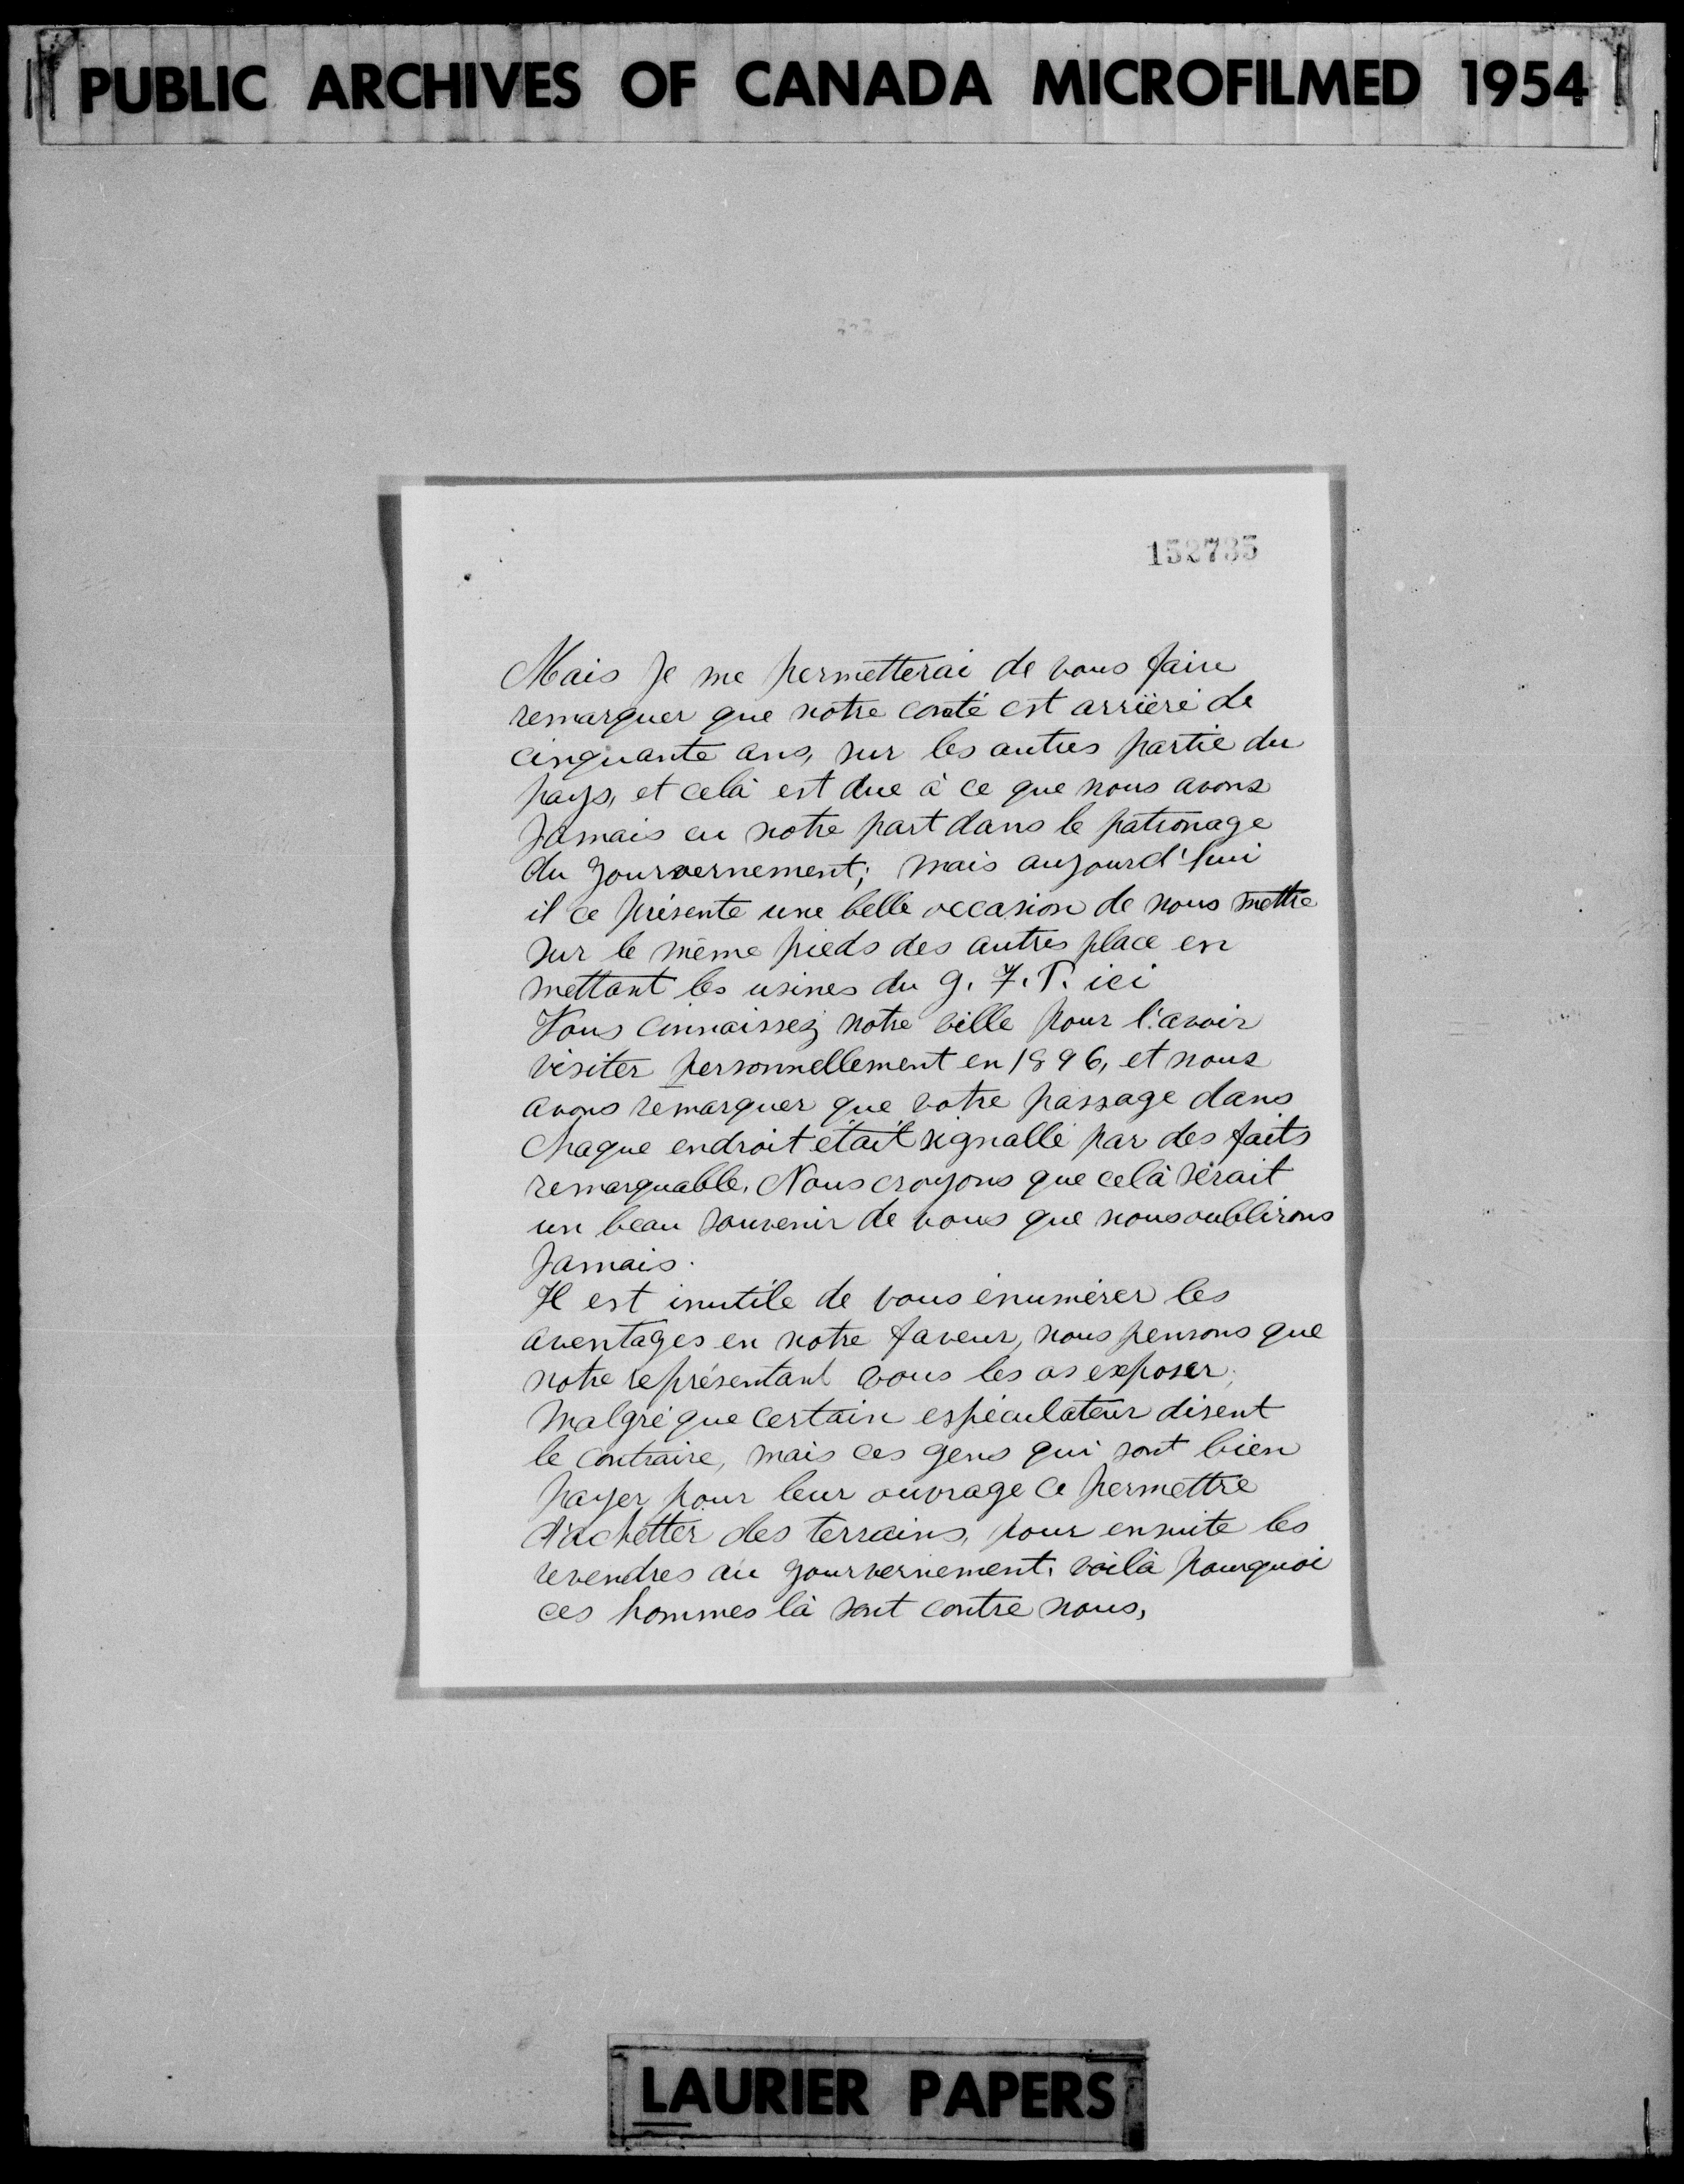 PUBLIC ARCHIVES OF CANADA MICROFILMED 1954
152735
Mais Je me permetterai de vous faire
remarquer que notre comté est arrièré de
cinquante ans, sur les autres partie du
pays, et celà est due à ce que nous avons
Jamais eu notre part dans le patronage
du gourvernement; mais aujourd'hui
il ce présente une belle occasion de nous mettre
sur le même pieds des autres place en
mettant les usines du G. T. P. ici
Vous connaissez notre ville pour l'avoir
visiter personnellement en 1896, et nous
avons remarquer que votre passage dans
chaque endroit était signallé par des faits
remarquable. Nous croyons que celà sérait
un beau souvenir de vous que nous oublirons
Jamais.
Il est inutile de vous énumérer les
aventages en notre faveur, nous pensons que
notre représentant vous les as exposer;
Malgré que certain espéculateur disent
le contraire, mais ces gens qui sont bien
payer pour leur ouvrage ce permettre
d'achetter des terrains, pour ensuite les
revendres au gourvernement. voilà pourquoi
ces hommes là sont contre nous,
LAURIER PAPERS